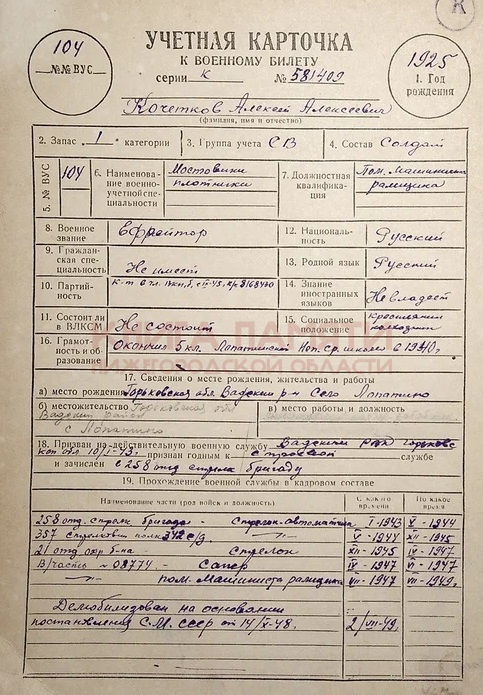 К
104
№№ ВУС
УЧЕТНАЯ КАРТОЧКА
К ВОЕННОМУ БИЛЕТУ
серии К № 581409
1925
1. Год
рождения
Кочетков Алексей Алексеевич
(фамилия, имя и отчество)
2. Запас 1 категории
3. Группа учета СВ
4. Состав Солдат
5. № ВУС
104
6. Наименова-
ние военно-
учетной спе-
циальности
Мостовики
плотники
7. Должностная
квалифика-
ция
Пом. Машиниста
рамщика
8. Военное
звание
Ефрейтор
12. Националь-
ность
Русский
9. Граждан-
ская спе-
циальность
Не имеет
13. Родной язык Русский
10. Партий-
ность
14. Знание
иностранных
языков
Не владеет
11. Состоит ли
в ВЛКСМ
Не состоит
15. Социальное
положение
16. Грамот-
ность и об
разование
Окончил 5 кл. Лопатинской ср. школы в 1940г.
КНИГА ПАМЯТИ
НИЖЕГОРОДСКОЙ ОБЛАСТИ
17. Сведения о месте рождения, жительства и работы
а) место рождения Горьковская обл Вадский р-н Село Лопатино
б) местожительство Горьковская обл
в) место работы и должность
Вадский район
с Лопатино
18. Призван на действительную военную службу Вадским РВК Горьковс
кой обл. 10/I-43. признан годным к строевой службе
и зачислен в 258 отд стрелк бригаду
19. Прохождение военной службы в кадровом составе
Наименование части (род войск и должность)
С какого
времени
По какое
время
258 отд. стрелк бригада - Стрелок-автоматчик I-1943 V-1944
357 стрелковый полк 342 с/д. V-1944 XII-1945
21 отд охр б-на - Стрелок XII-1945 IV-1947
В/часть - 08774 - Сапер IV-1947 VII-1947
-"- пом. Машиниста рамщика VII-1947 VII-1949.
Демобилизован на основании
постановления С.М. СССР от 14/X-48. 2/VII-49.